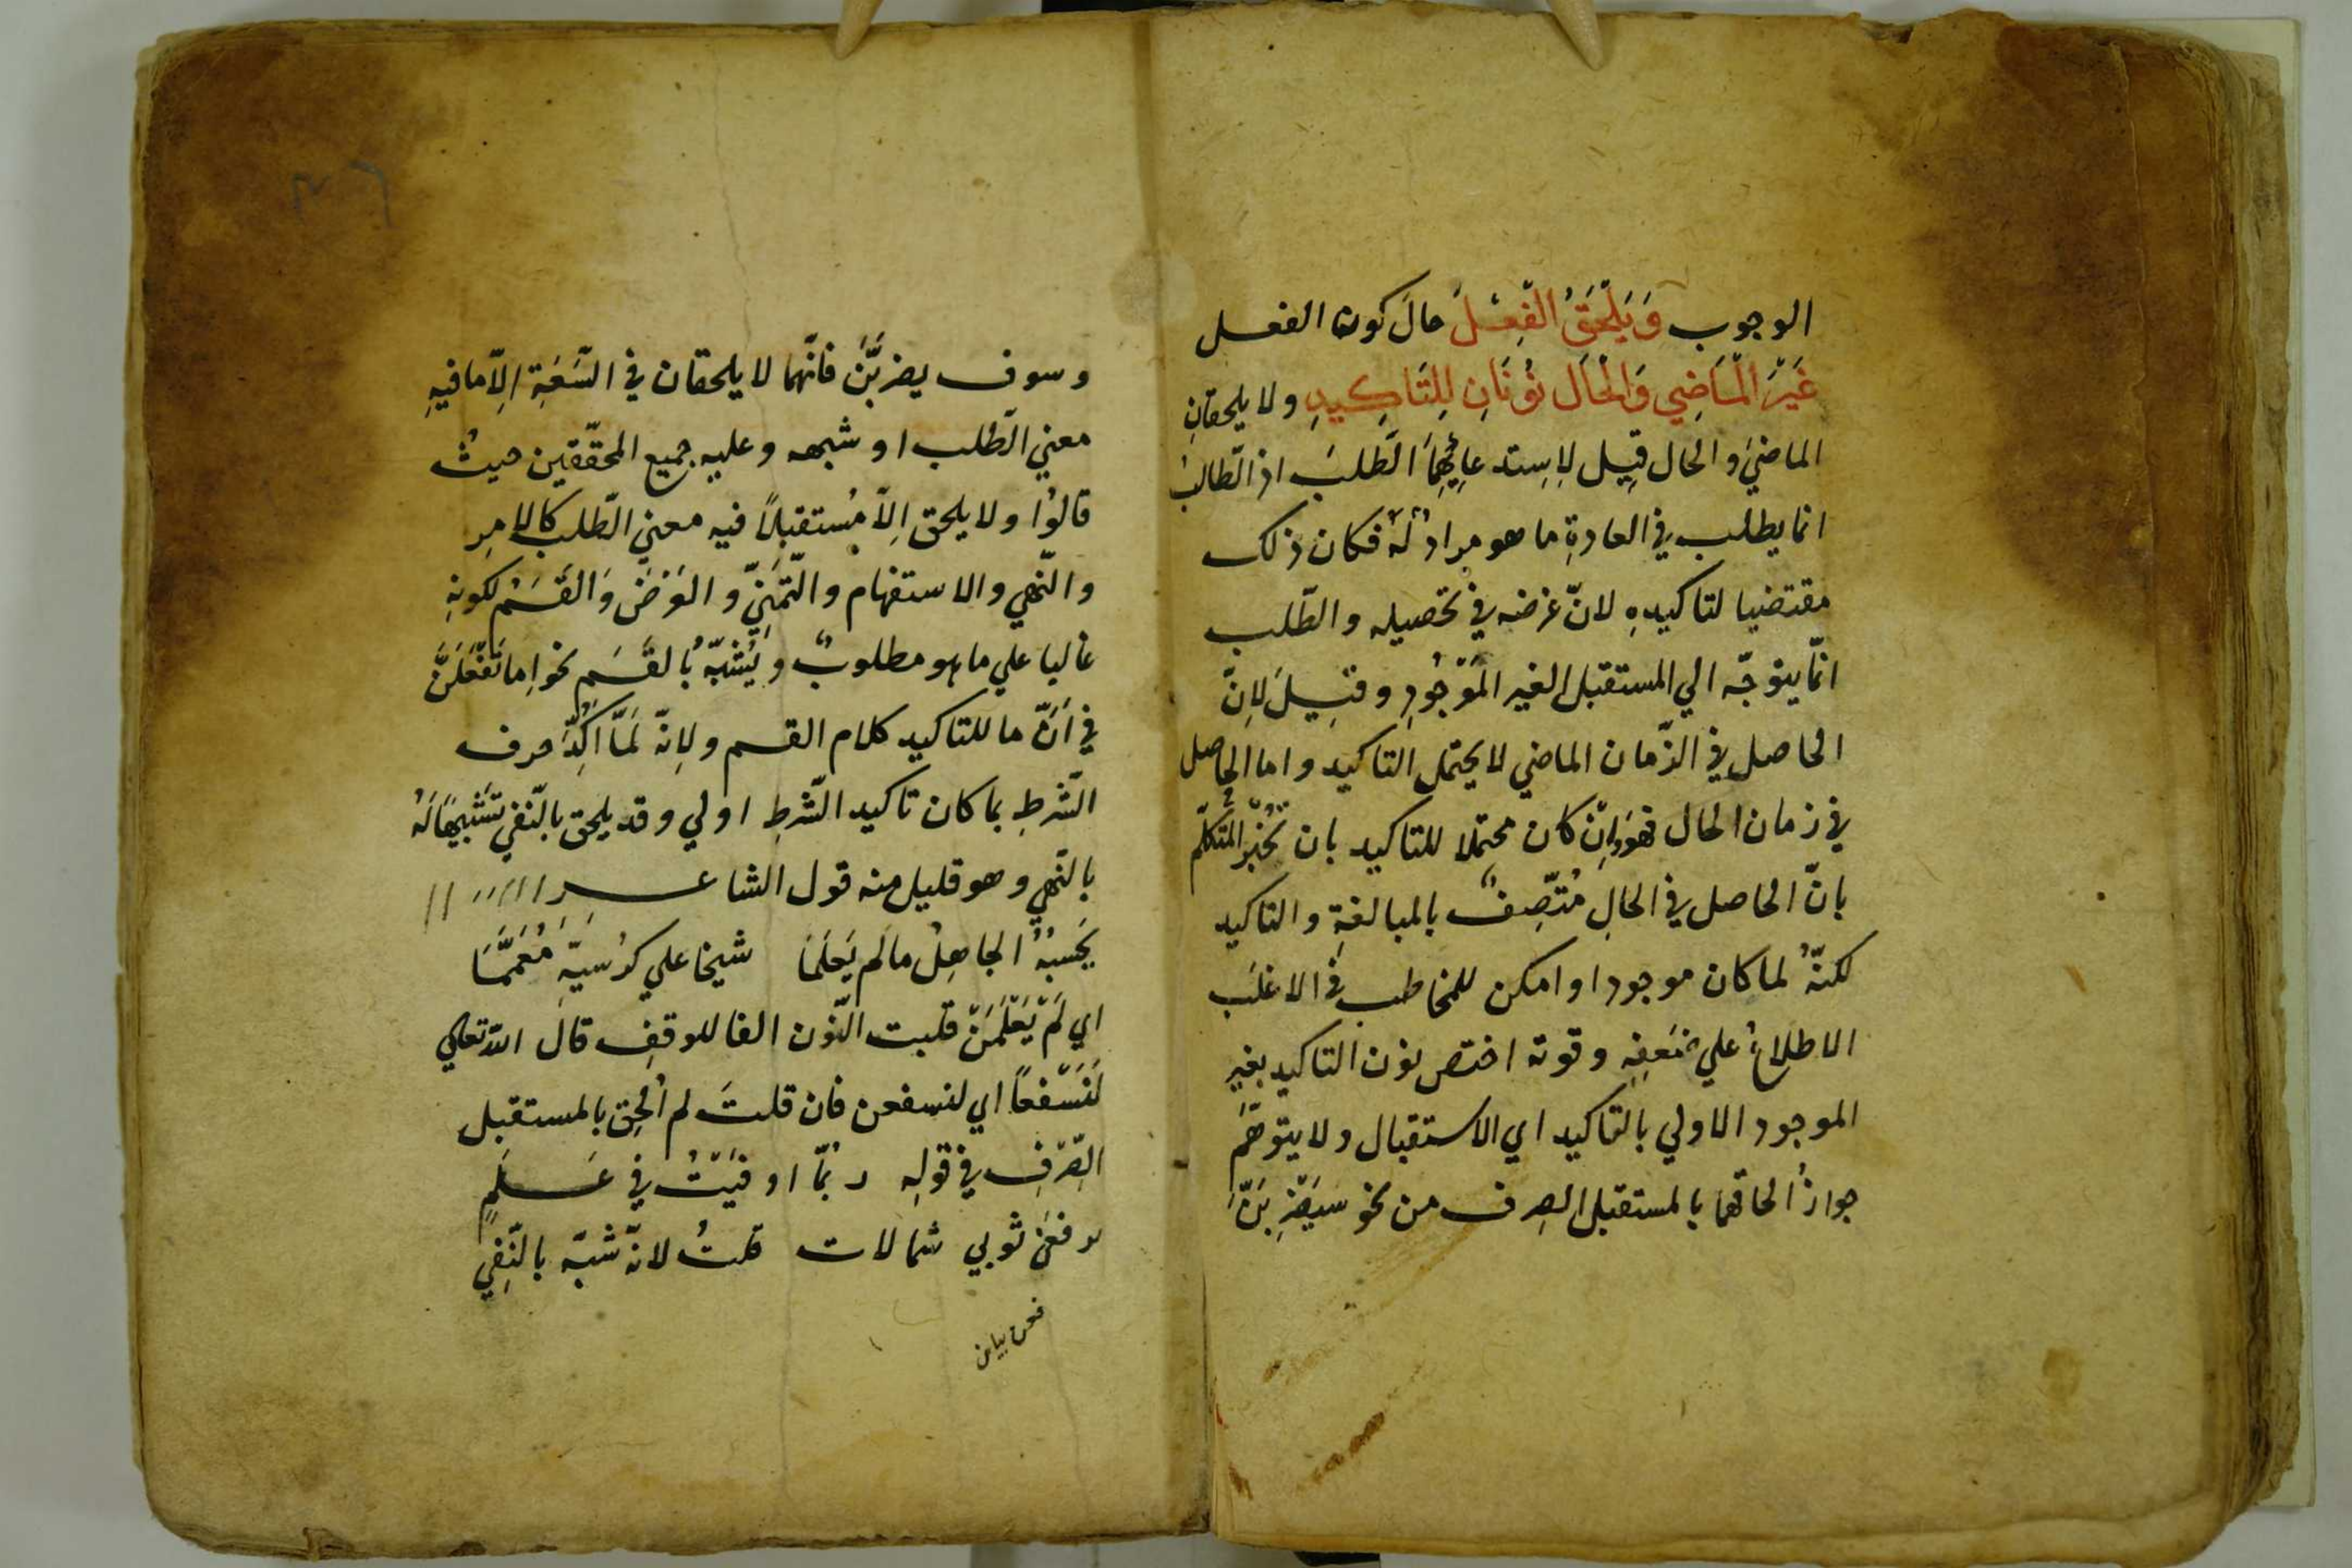 الوجوب وَيَلْحَقُ الْفِعْلَ حالَ كون الفعل
غَيْرَ الْمَاضِي وَالْحَال نُونَانِ لِلتَّاكِيدِ ولا يلحقانِ
الماضيَ والحال قيِل لِاستدعائِهِمَا الطَّلبَ اذ الطّالبُ
انما يطلب في العادةِ ما هو مرادٌ لَهُ فكان ذلك
مقتضيا لتاكيدهِ لانّ غرضه في تحصيله والطّلب
انّما يتوجّه الي المستقبل الغير المَوْجُودِ وقيِلَ لِانّ
الحاصل في الزّمان الماضي لا يحتمل التاكيد واما الحاصل
في زمان الحال فهو وَاِنْ كان محتملا للتاكيد بان تُخْبِرَ المتكلّم
بانّ الحاصل في الحالِ مُتّصِفٌ بالمبالغةِ والتاكيد
لكنّهُ لما كان موجودا وامكن للمخاطب في الاغلب
الاطلاعُ علي ضَعفِهِ وقوته اختص نون التاكيد بغير
الموجود الاولي بالتاكيد اي الاستقبال ولا يتوهّم
جوازُ الحاقهما بالمستقبل الصِرف من نحو سَيَضْرِبَنَّ
وسوف يضربَنَّ فانّهما لا يلحقان في السَّعَةِ اِلاّ ما فيهِ
معني الطّلب او شبهه وعليه جميع المحقّقين حيثُ
قالوُا ولا يلحق اِلاّ مُستقبلاً فيه معني الطّلب كالامرِ
والنّهي والاستفهام والتّمَنّيِ والعَرْضَ وَالقَسَمْ لكونهِ
غالبا علي ما هو مطلوبٌ ويُشبّهُ بالقَسَم نحو اِما تَفْعَلَنَّ
في اَنَّ ما للتاكيد كلام القسم ولِانّه لَمَّا اُكِدَّ حرف
الشّرطِ بما كان تاكيد الشّرطِ اولي وقد يلحق بالنّفي تَشْبِيهًا لَهُ
بالنّهي وهو قليل منه قول الشاعر
يَحْسبُهُ الجاهِلُ ما لَم يَعلَمَا شيخا علي كُرْسيّهِ مُعَمَّمَا
اي لَمْ يَعْلَمَنْ قلبت النّون الفا للوقفِ قال الله تعالي
لَنَسْفعًا اي لنسفعن فان قلتَ لم اُلحِق بالمستقبل
الصّرْفِ في قوله ربُمّا اوفَيْتُ في عَلَمٍ
ترفعَنْ ثوبي شمالات قلتُ لانّه شبّه بالنّفي